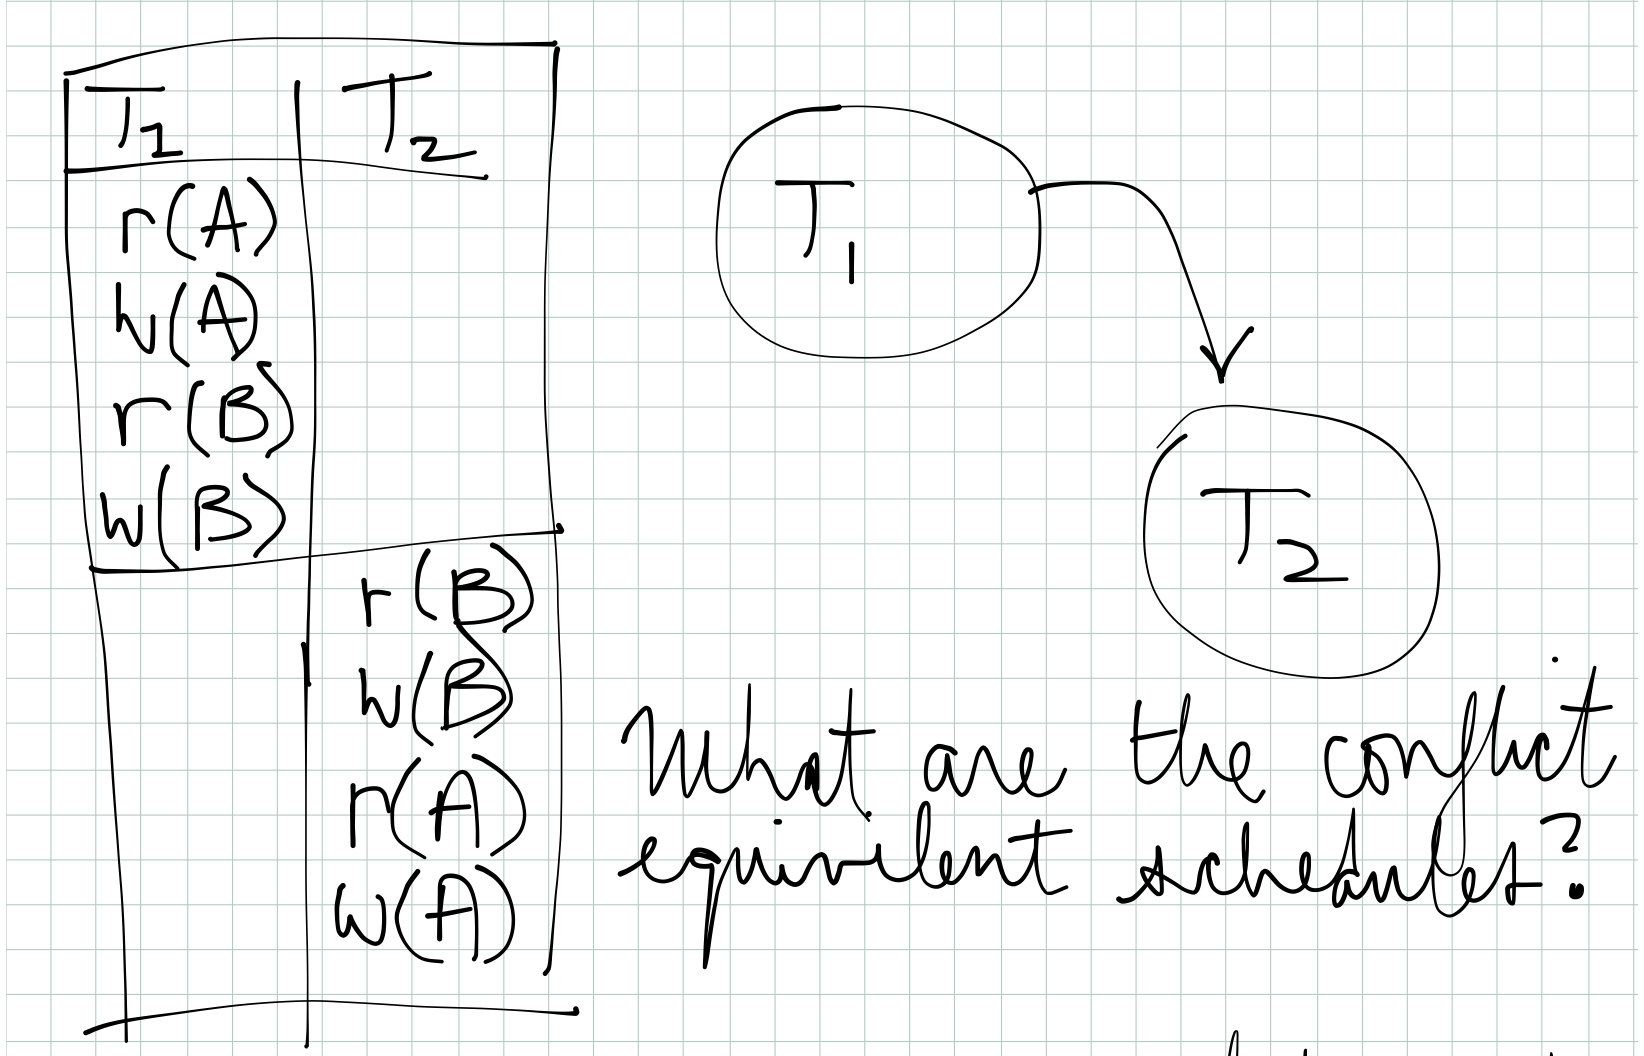 T1 T2
r(A)
W(A)
r(B)
W(B)
r(B)
W(B)
r(A)
W(A)
T1
T2
What are the conflict
equivilent schedules?